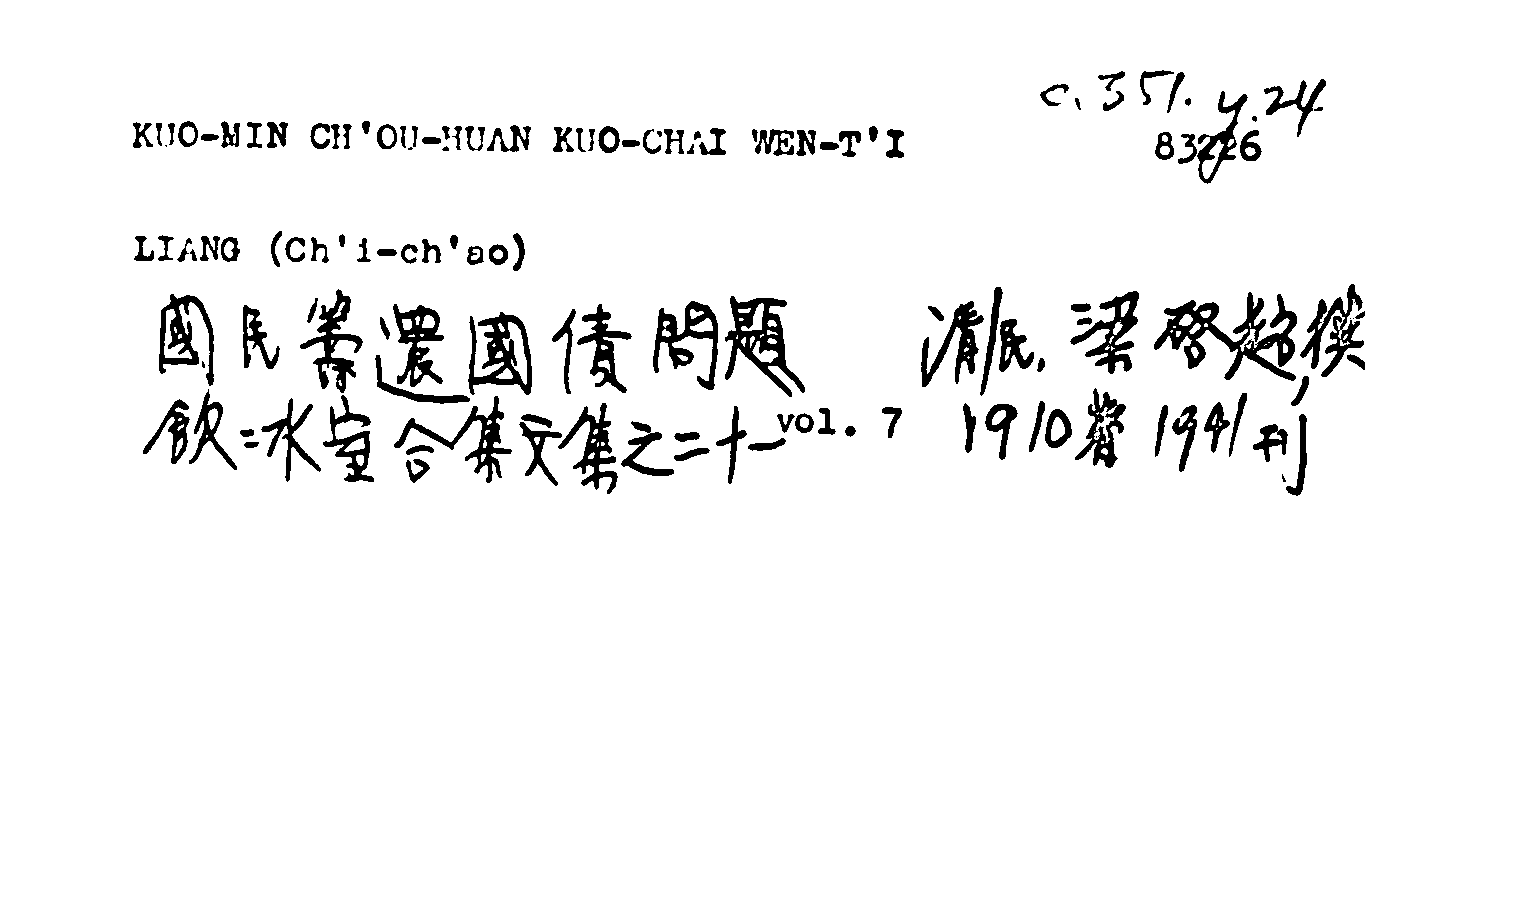 c. 351. y. 24
KUO-MIN CH'OU-HUAN KUO-CHAI WEN-T'I
83226
LIANG (Ch'i-ch'ao)
國民籌還國債問題 清/民. 梁啓超撰
飲冰室合集文集之二十一 vol. 7 1910著 1941刊